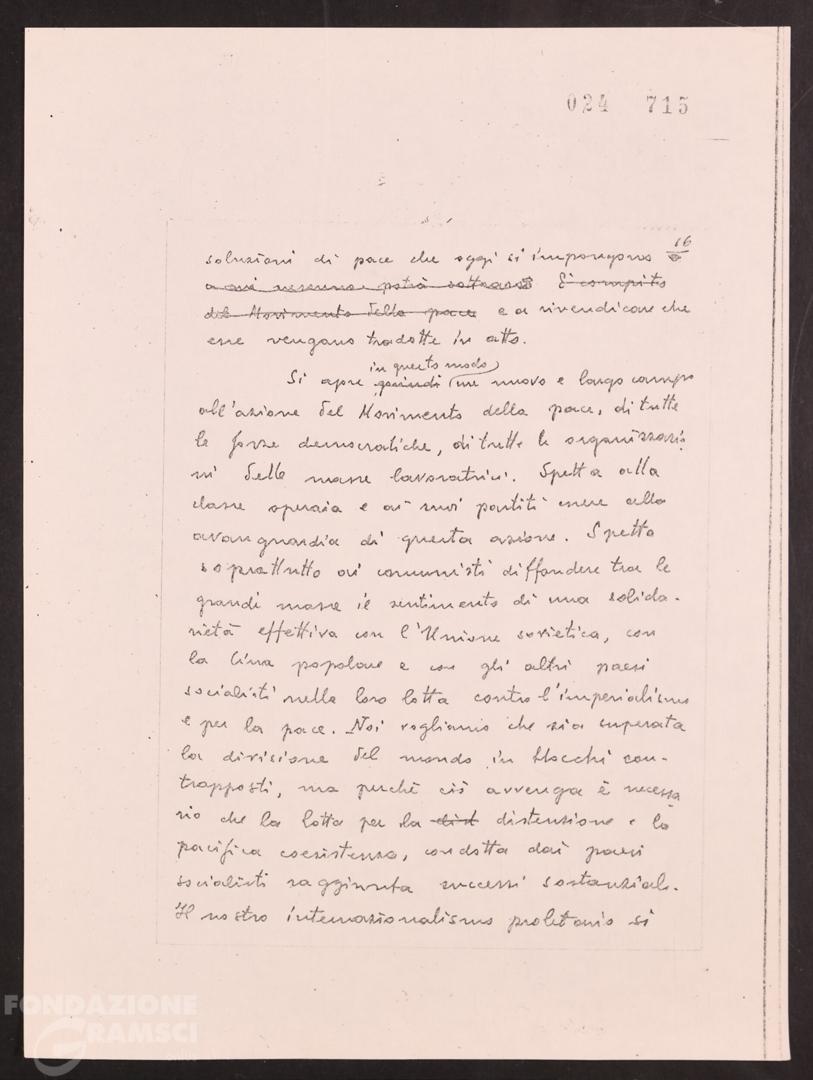 024 715
16
soluzioni di pace che oggi si impongono
a cui nessuno potrà sottrarsi È compito
del Movimento della pace e a rivendicare che
esse vengano tradotte in atto.
in questo modo
Si apre quindi un nuovo e largo campo
all'azione del Movimento della pace, di tutte
le forze democratiche, di tutte le organizzazio
ni delle masse lavoratrici. Spetta alla
classe operaia e ai suoi partiti essere alla
avanguardia di questa azione. Spetta
soprattutto ai comunisti diffondere tra le
grandi masse il sentimento di una solida-
rietà effettiva con l'Unione sovietica, con
la Cina popolare e con gli altri paesi
socialisti nella loro lotta contro l'imperialismo
e per la pace. Noi vogliamo che sia superata
la divisione del mondo in blocchi con-
trapposti, ma perché ciò avvenga è necessa
rio che la lotta per la dist distensione e la
pacifica coesistenza, condotta dai paesi
socialisti raggiunta successi sostanziali.
Il nostro internazionalismo proletario si
FONDAZIONE
GRAMSCI
ONLUS